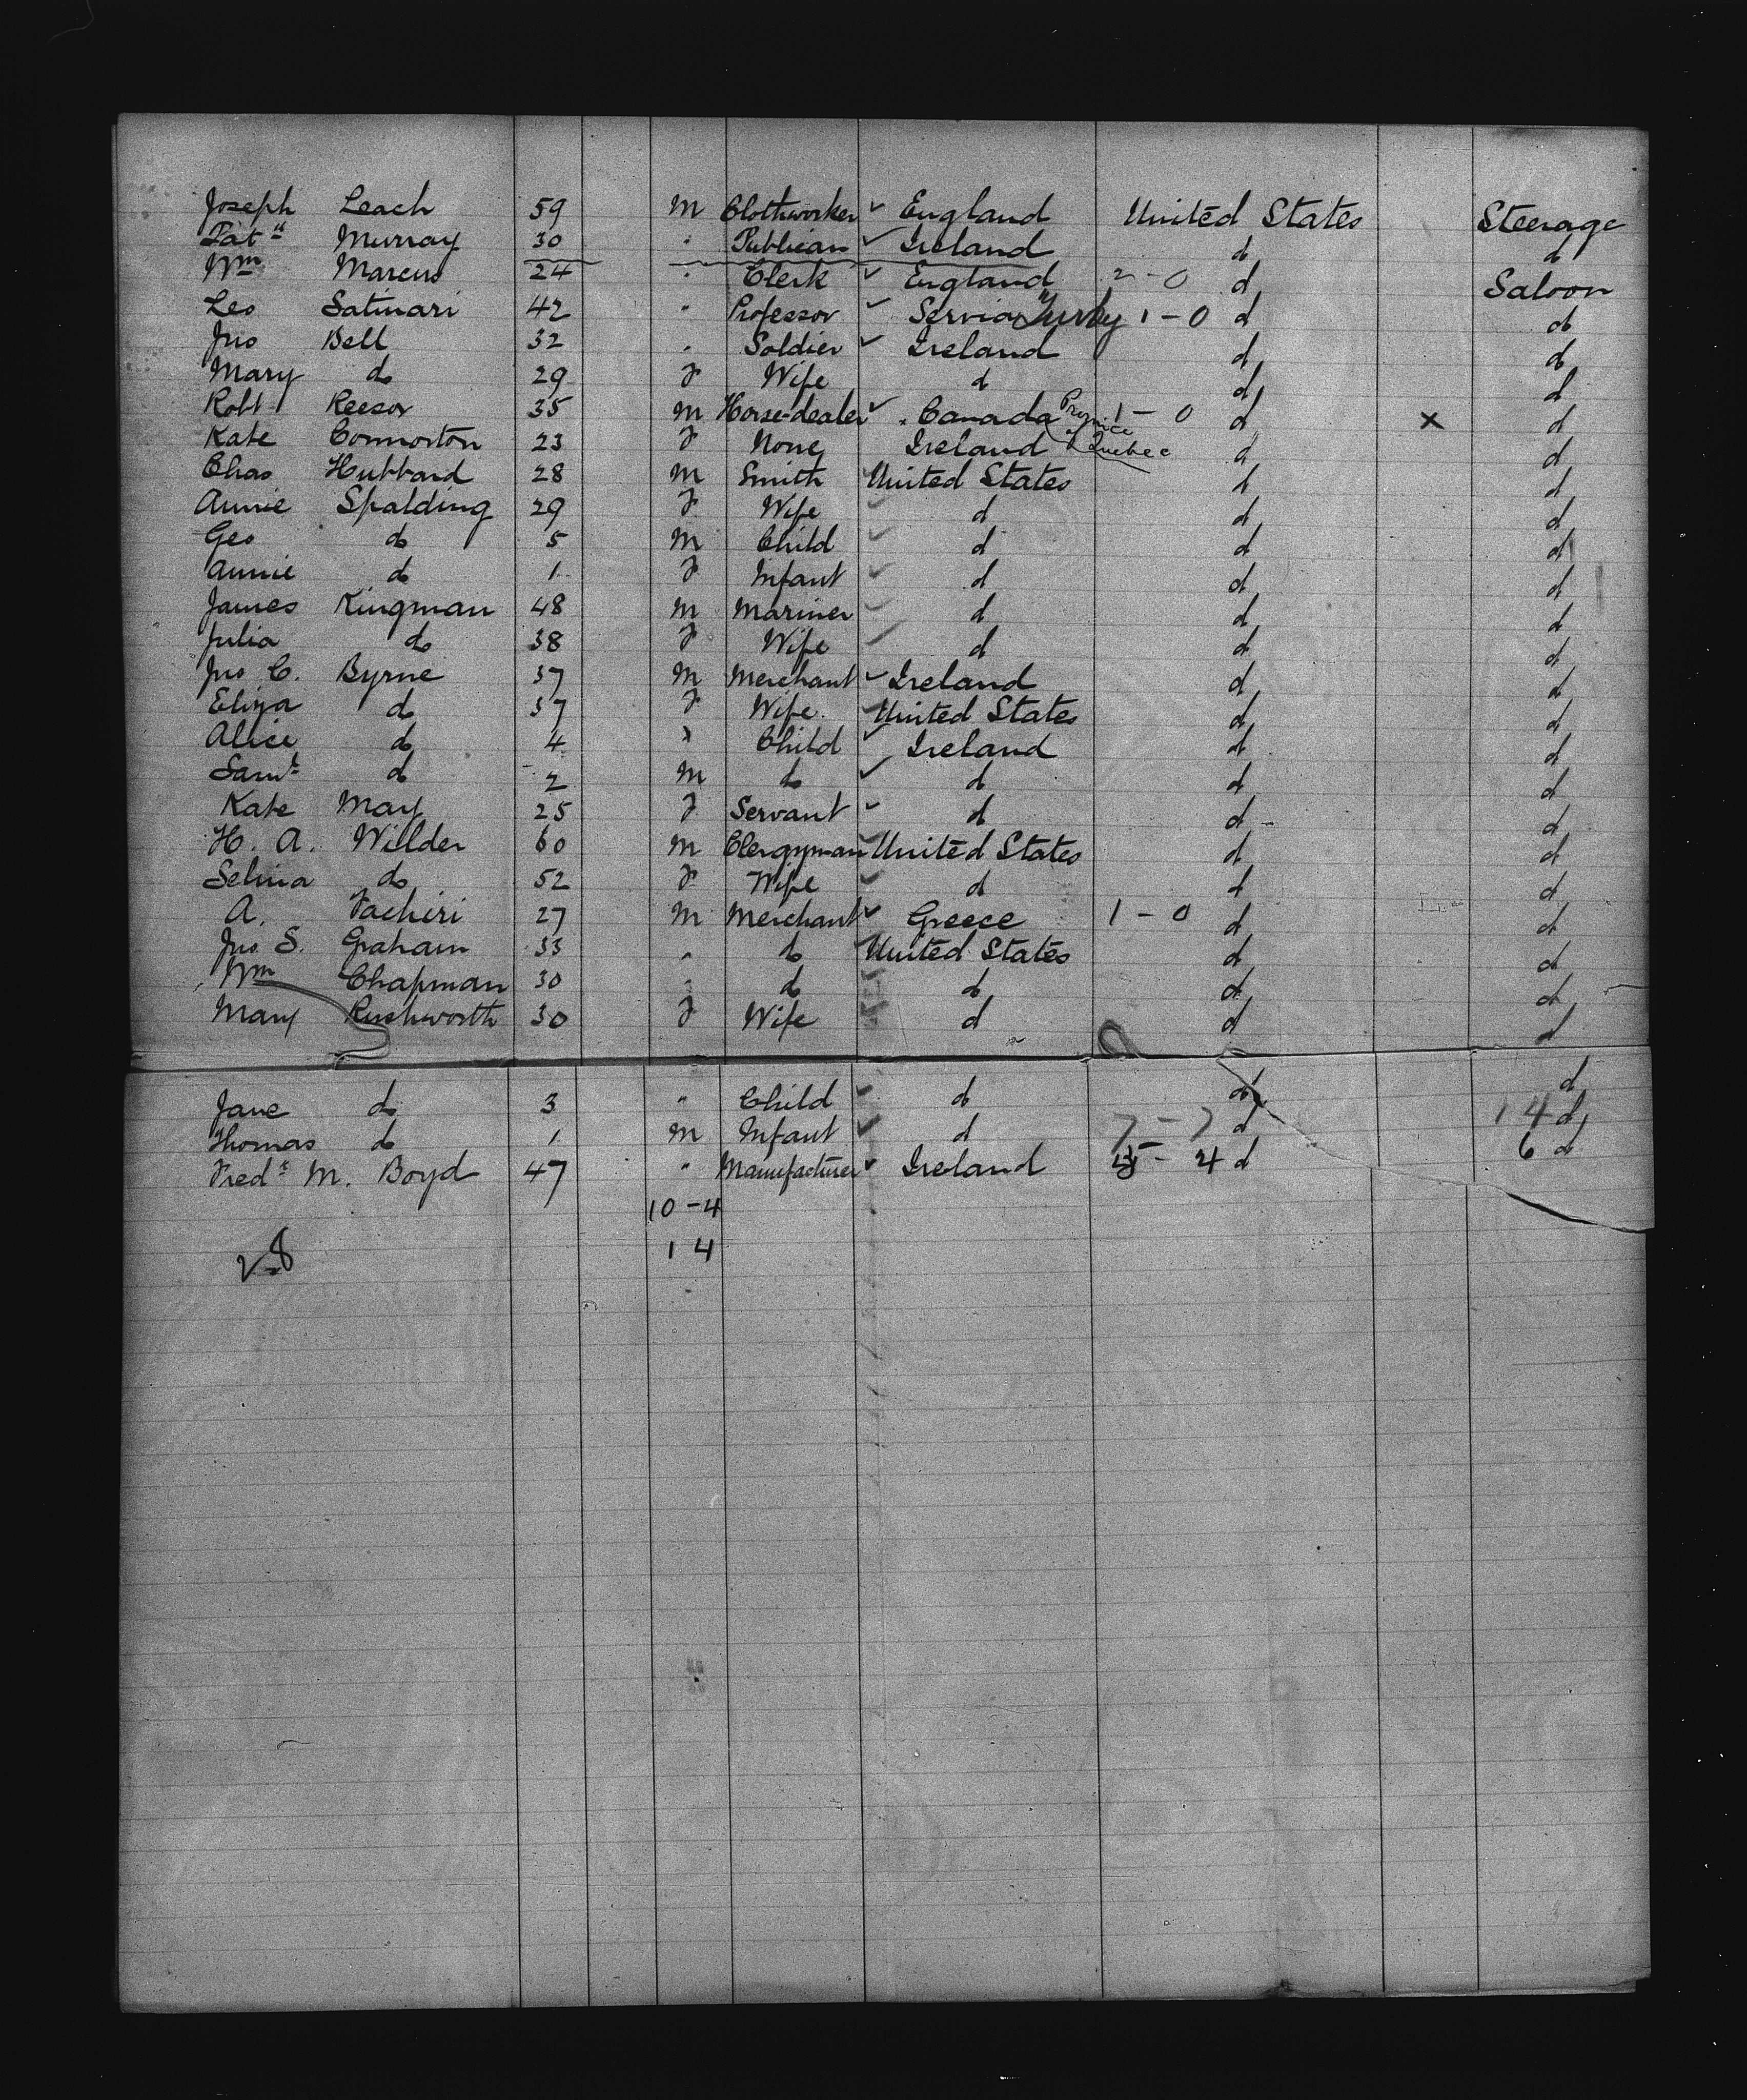 Joseph Leach 59 M Clothworker ✓ England United States Steerage
Patk Murray 30 " Publican ✓ Ireland do do
Wm Marcus 24 " Clerk ✓ England 2-0 do Saloon
Leo Satinari 42 " Professor ✓ Servia Turkey 1-0 do do
Jno Bell 32 " Soldier ✓ Ireland do do
Mary do 29 F Wife do do do
Robt Reesor 35 M Horse-dealer ✓ Canada Province of Quebec 1-0 do X do
Kate Connorton 23 F None Ireland do do
Chas Hubbard 28 M Smith United States do do
Annie Spalding 29 F Wife ✓ do do do
Geo do 5 M Child ✓ do do do
Annie do 1 F Infant ✓ do do do
James Kingman 48 M Mariner ✓ do do do
Julia do 38 F Wife ✓ do do do
Jno C. Byrne 37 M Merchant ✓ Ireland do do
Eliza do 37 F Wife ✓ United States do do
Alice do 4 " Child ✓ Ireland do do
Saml do 2 M do ✓ do do do
Kate May 25 F Servant ✓ do do do
H. A. Wilder 60 M Clergyman ✓ United States do do
Selina do 52 F Wife ✓ do do do
A. 27 M Merchant ✓ Greece 1-0 do do
Jno S. Graham 33 " do ✓ United States do do
Wm Chapman 30 " do do do do
Mary Rushworth 30 F Wife do do do
Jane do 3 " Child ✓ do do do
Thomas do 1 M Infant ✓ do 7-7 do 14 do
Fredk M. Boyd 47 " Manufacturer ✓ Ireland 4 do 6 do
10-4
14
28